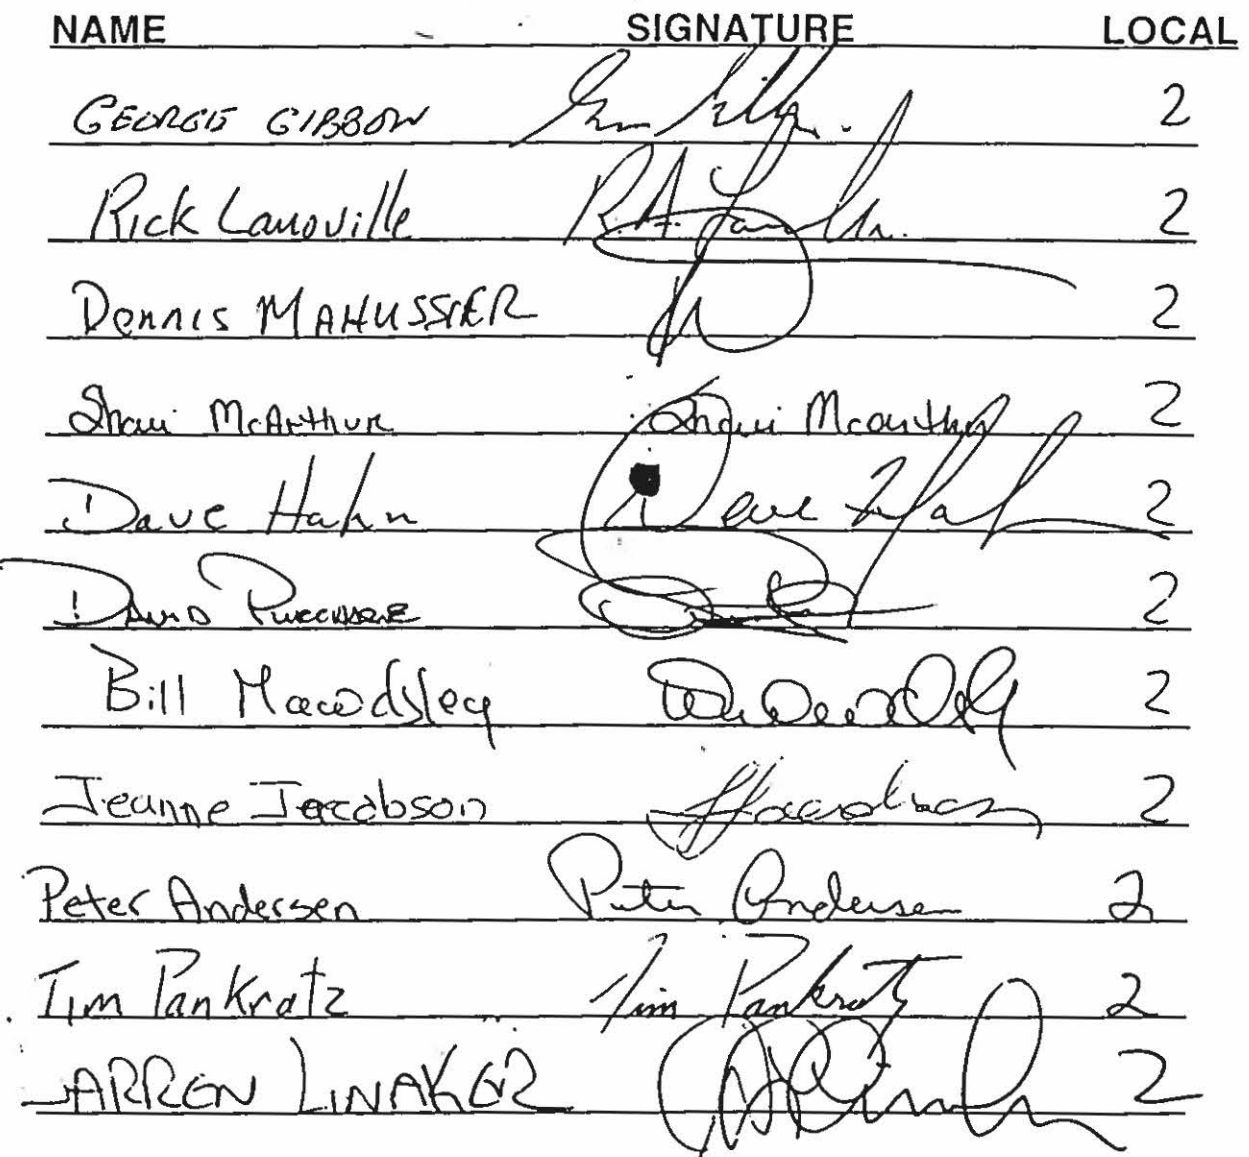 NAME SIGNATURE LOCAL
GEORGE GIBBON 2
Rick Lanoville R.A. 2
Dennis MAHUSSIER 2
Shaui McArthur Shaui Mcarthur 2
Dave Hahn Dave Hahn 2
DAVID 2
Bill Mawdsley 2
Jeanne Jacobson JJacobson 2
Peter Andersen Peter Andersen 2
Tim Pankratz Tim Pankratz 2
JARREN LINAKER 2